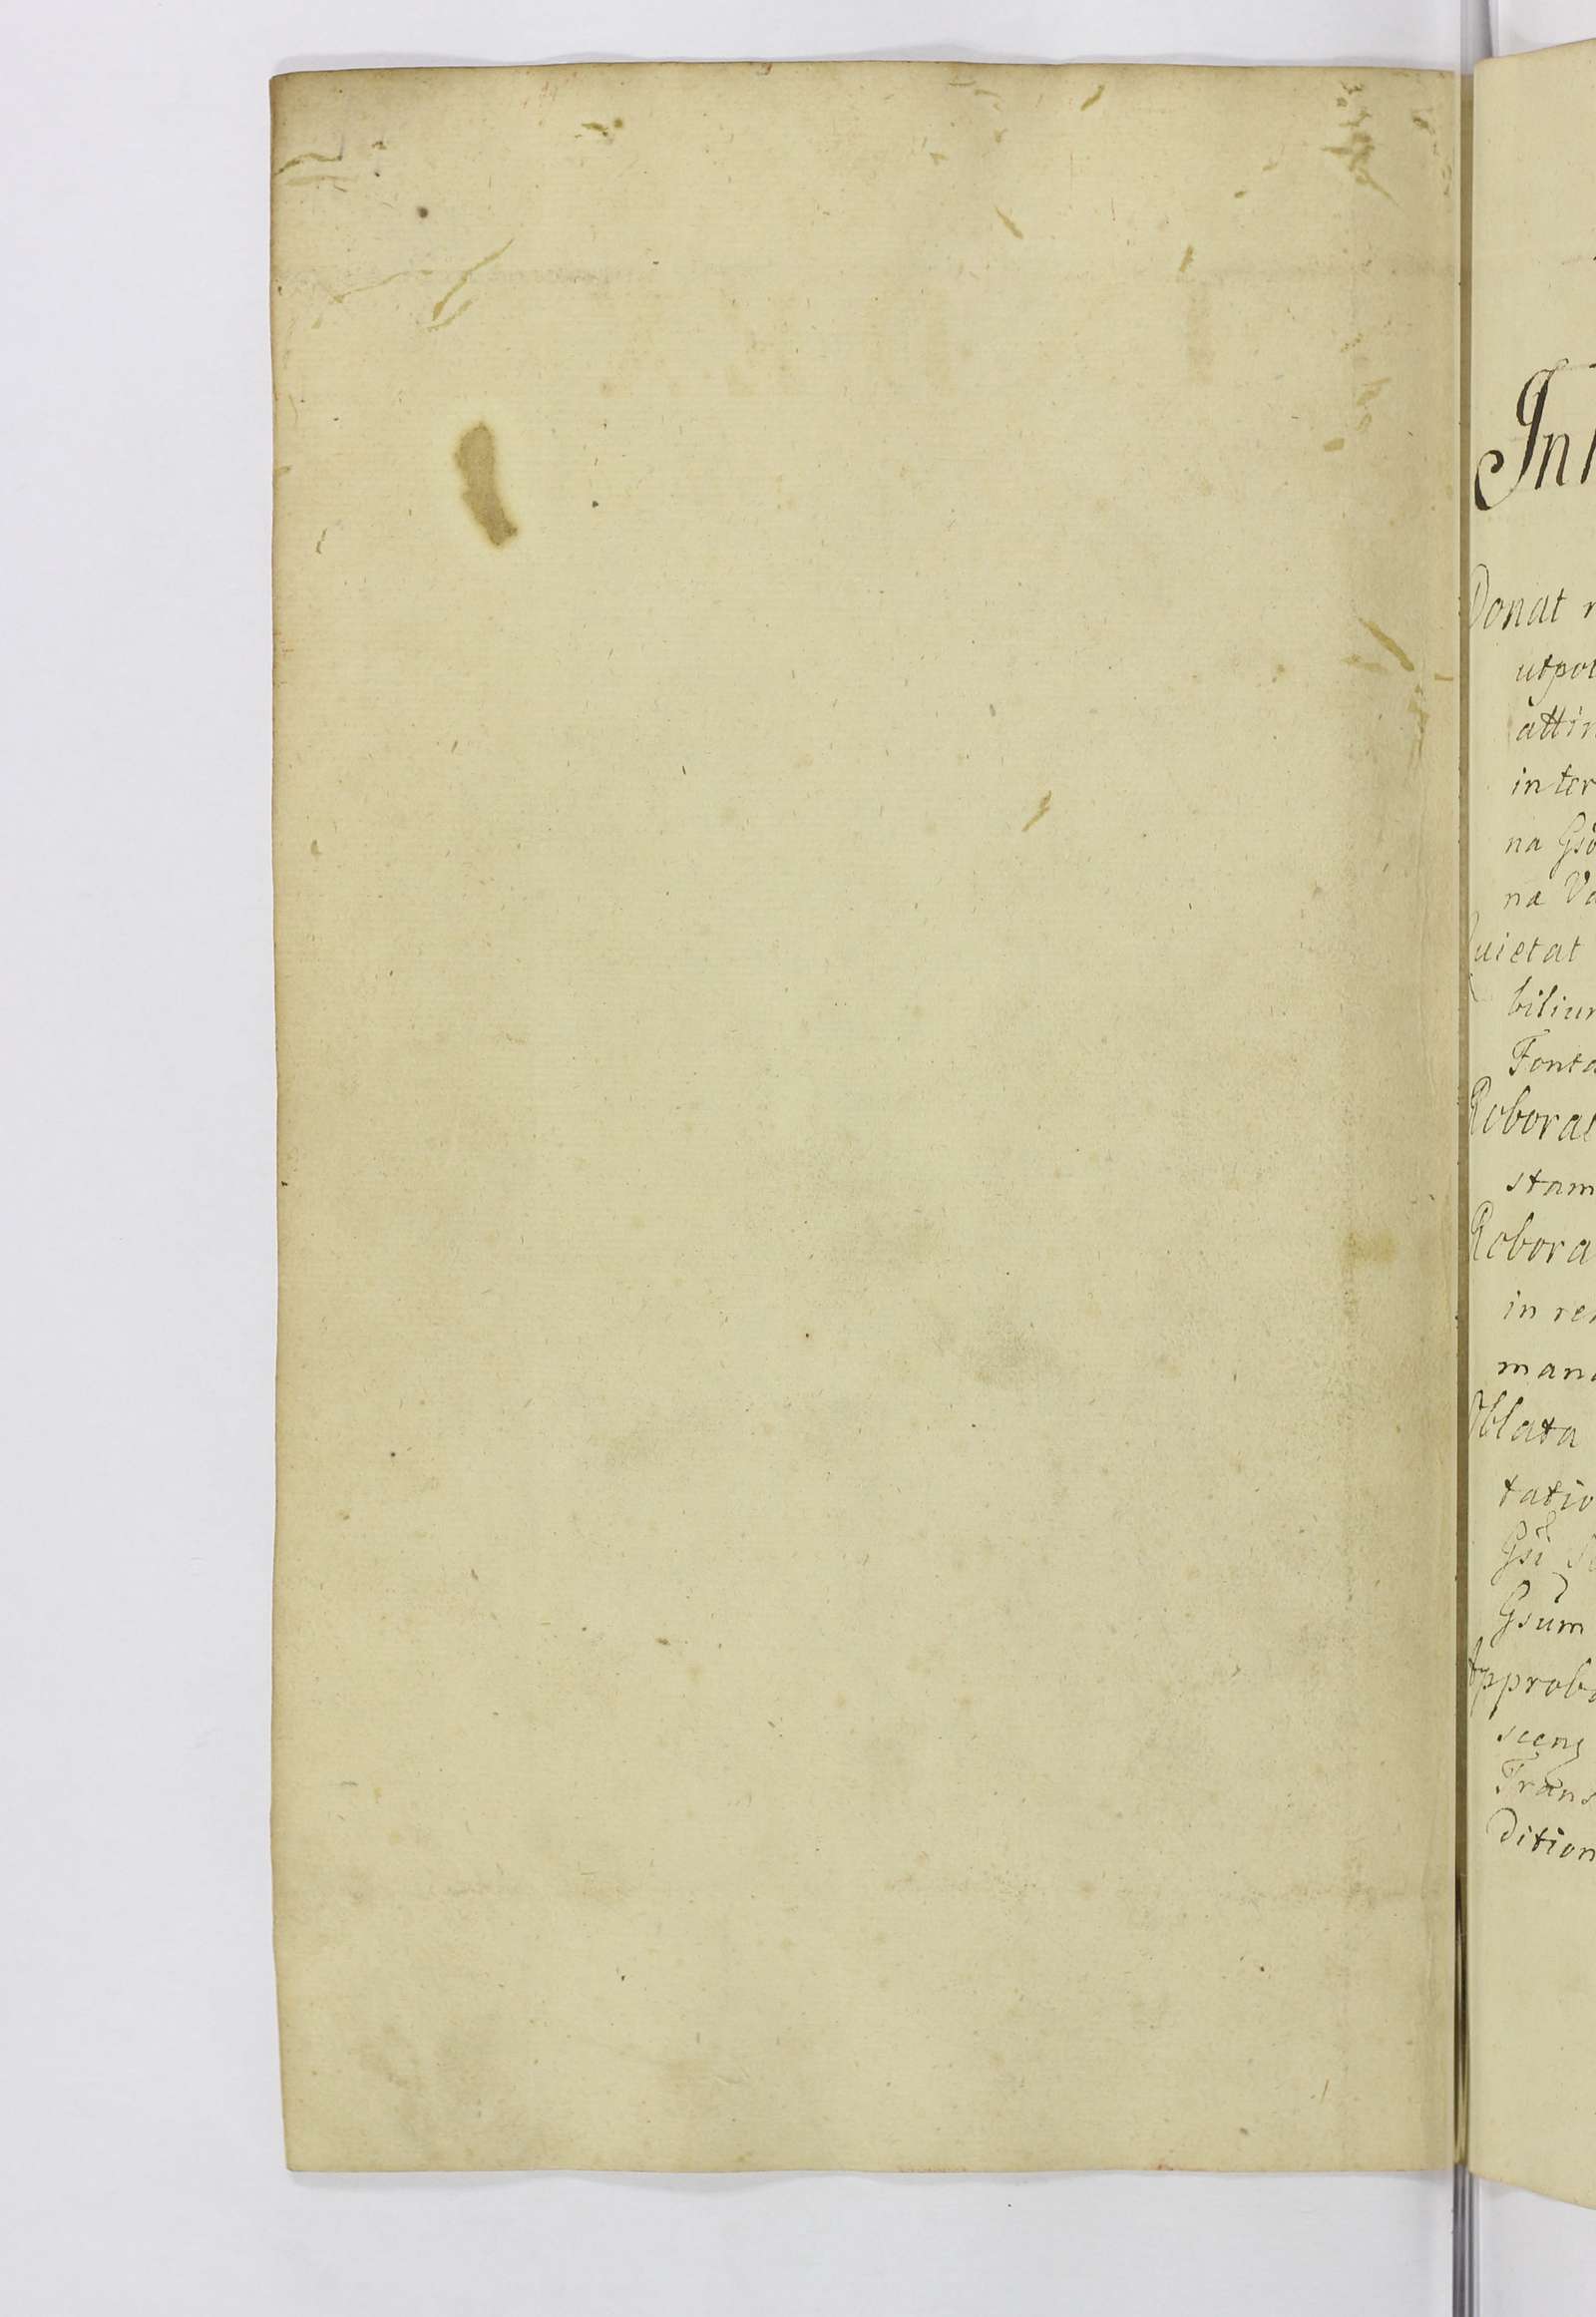 In
Donat
utpot
attin
inter
na Gso
na Va
uietat
bilium
Fonta
Roborat
stam
Robora
in re
mand
Oblata
tatio
Gsi
Gsum
Approba
Trans
dition